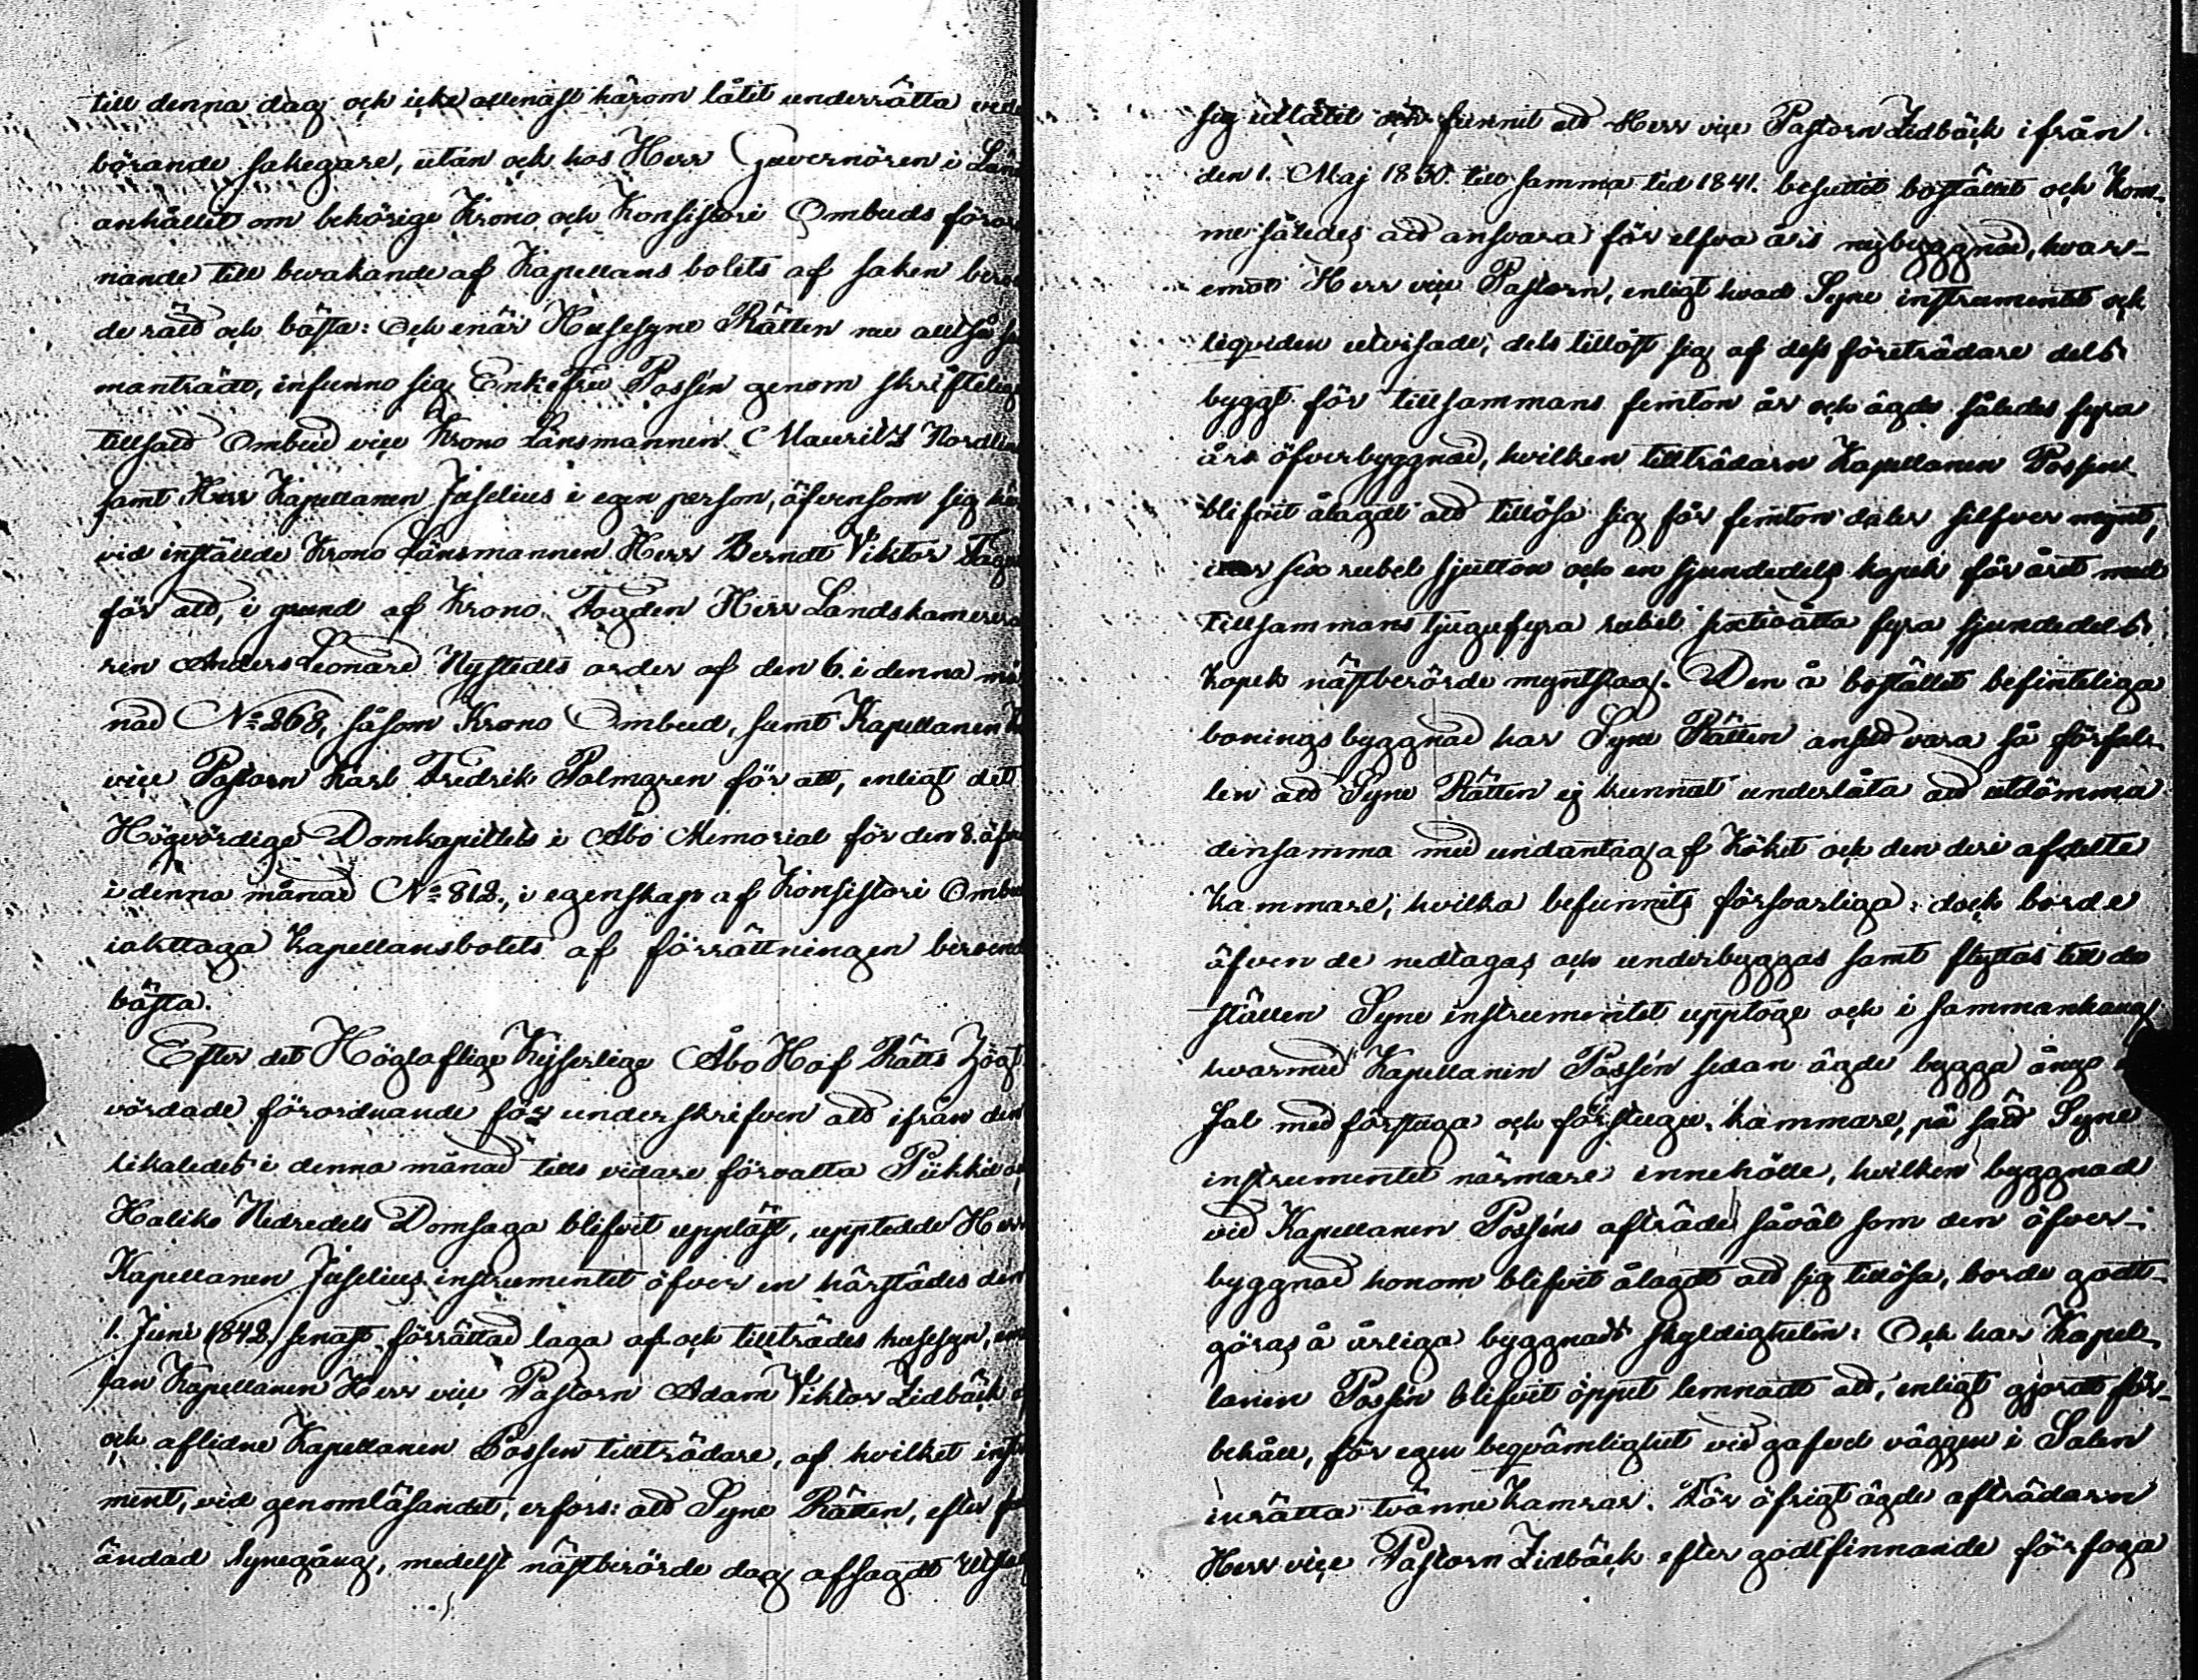 till denna dag och icke allenast härom låtit underrätta ved
börande sakegare, utan och hos Herr Guvernören i Län
anhållit om behörige Krono och Konsistori Ombuds föror
nande till bevakande af Kapellans bolets af saken beroe
de rätt och bästa: Och enär Husesyne Rätten nu alltså sa
manträdt, infunno sig Enkefru Possén genom skrifteligt
tillsatt Ombud vice Krono Länsmannen Mauritz Nordlun
samt Herr Kapellanen Juselius i egen person, äfvensom sig här
vid inställde Krono Länsmannen Herr Berndt Viktor Fager
för att, i grund af Krono Fogden Herr Landskamrera
ren Anders Leonard Nystedts order af den 6. i denna må
nad No 268, såsom Krono Ombud, samt Kapellanen H
vice Pastorn Karl Fredrik Palmgren för att, enligt det
Högvördige Domkapitlets i Åbo Memorial för den 8. äfve
i denna månad No 812., i egenskap af Konsistori Ombu
iakttaga Kapellansbolets af förrättningen beroend
bästa.
Efter det Höglaflige Kejserlige Åbo Hof Rätts Högt
vördade förordnande för underskrifven att ifrån den
likaledes i denna månad tills vidare förvalta Piikkie oc
Haliko Nedredels Domsaga blifvit uppläst, uppteedde Herr
Kapellanen Juselius instrumentet öfver en härstädes den
1. Juni 1842 senast förrättad laga af och tillträdes husesyn, em
lan Kapellanen Herr vice Pastorn Adam Viktor Lidbäck
och aflidne Kapellanen Possen tillträdare, af hvilket instru
ment, vid genomläsandet, erfors: att Syne Rätten, efter
ändad Synegång, medelst nästberörde dag afsagdt Utslag
sig utlåtit och funnit att Herr vice Pastorn Lidbäck ifrån
den 1. Maj 1830. till samma tid 1841. besuttit bostället och Kom-
me således att ansvara för elfva års nybyggnad, hvar-
emot Herr vice Pastorn, enligt hvad Syne instrumentet och
liqviden utvisade, dels tillöst sig af dess företrädare dels
byggt för tillsammans femton år och ägde således fyra
års öfverbyggnad, hvilken tillträdarn Kapellanen Possen
blifvit ålagdt att tillösa sig för femton daler silfver mynt,
eller sex rubel sjutton och en sjundedels kopek för året med
tillsammans tjugufyra rubel sextioåtta fyra sjundedels
Kopek nästberörde myntslag. Den å bostället befinteliga
boningsbyggnad har Syne Rätten ansett vara så förfal-
len att Syne Rätten ej kunnat underlåta att utdömma
densamma med undantag af Köket och den deri afdelta
Kammare, hvilka befunnits försvarliga; dock borde
äfven de nedtagas och underbyggas samt flyttas till de
ställen Syne instrumentet upptoge och i sammanhang
hvarmed Kapellanen Possén sedan ägde bygga ånyo
Sal med förstuga och förstugu kammare, på sätt Syne
instrumentet närmare innehölle, hvilken byggnad
vid Kapellanen Posséns afträde såväl som den öfver-
byggnad honom blifvit ålagdt att sig tillösa, borde godt-
göras å årliga byggnads skyldigheten: Och har Kapel-
lanen Possén blifvit öppet lemnadt att, enligt gjordt för-
behåll, för egen beqvämlighet vid gafvel väggen i Salen
inrätta tvänne Kamrar. För öfrigt ägde afträdarn
Herr vice Pastorn Lidbäck efter godtfinnande förfoga